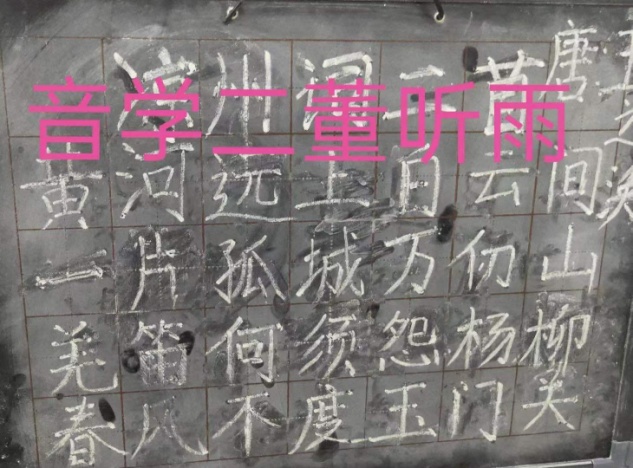 凉州词二首 唐 王之涣
音学二董听雨
黄河远上白云间
一片孤城万仞山
羌笛何须怨杨柳
春风不度玉门关